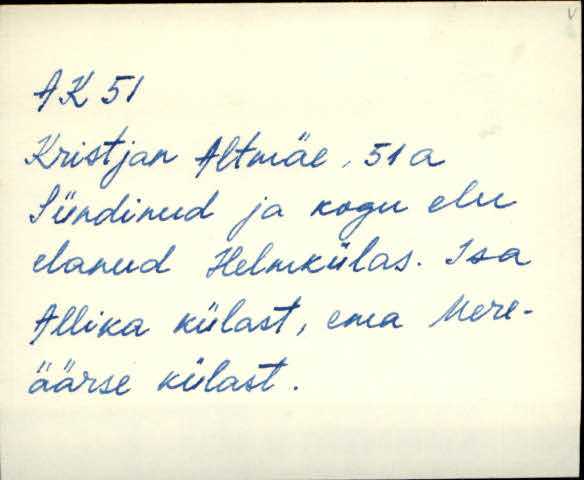 AK 51
Kristjan Altmäe, 51 a
Sündinud ja kogu elu
elanud Helmkülas. Isa
Allika külast, ema Mere-
äärse külast.